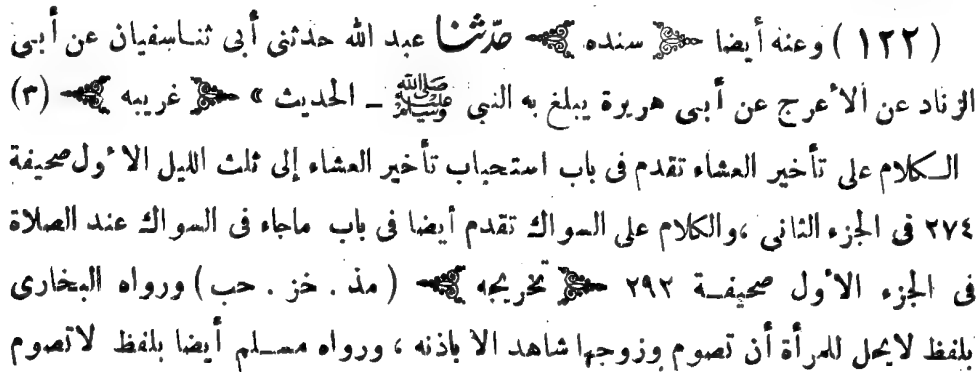 ( ١٢٢ ) وعنه أيضا ﴿ سنده ﴾ حدّثنا عبد الله حدثنى أبى ثنا سفيان عن أبى
الزناد عن الأعرج عن أبى هريرة يبلغ به النبى ﷺ ــ الحديث » ﴿ غريبه ﴾ (٣)
الكلام على تأخير العشاء تقدم فى باب استحباب تأخير العشاء إلى ثلث الليل الأول صحيفة
٢٧٤ فى الجزء الثانى ، والكلام على السواك تقدم أيضا فى باب ماجاء فى السواك عند الصلاة
فى الجزء الأول صحيفة ٢٩٢ ﴿ تخريجه ﴾ ( مذ . خز . حب ) ورواه البخارى
بلفظ لايحل للمرأة أن تصوم وزوجها شاهد الا باذنه ، ورواه مسلم أيضا بلفظ لاتصوم